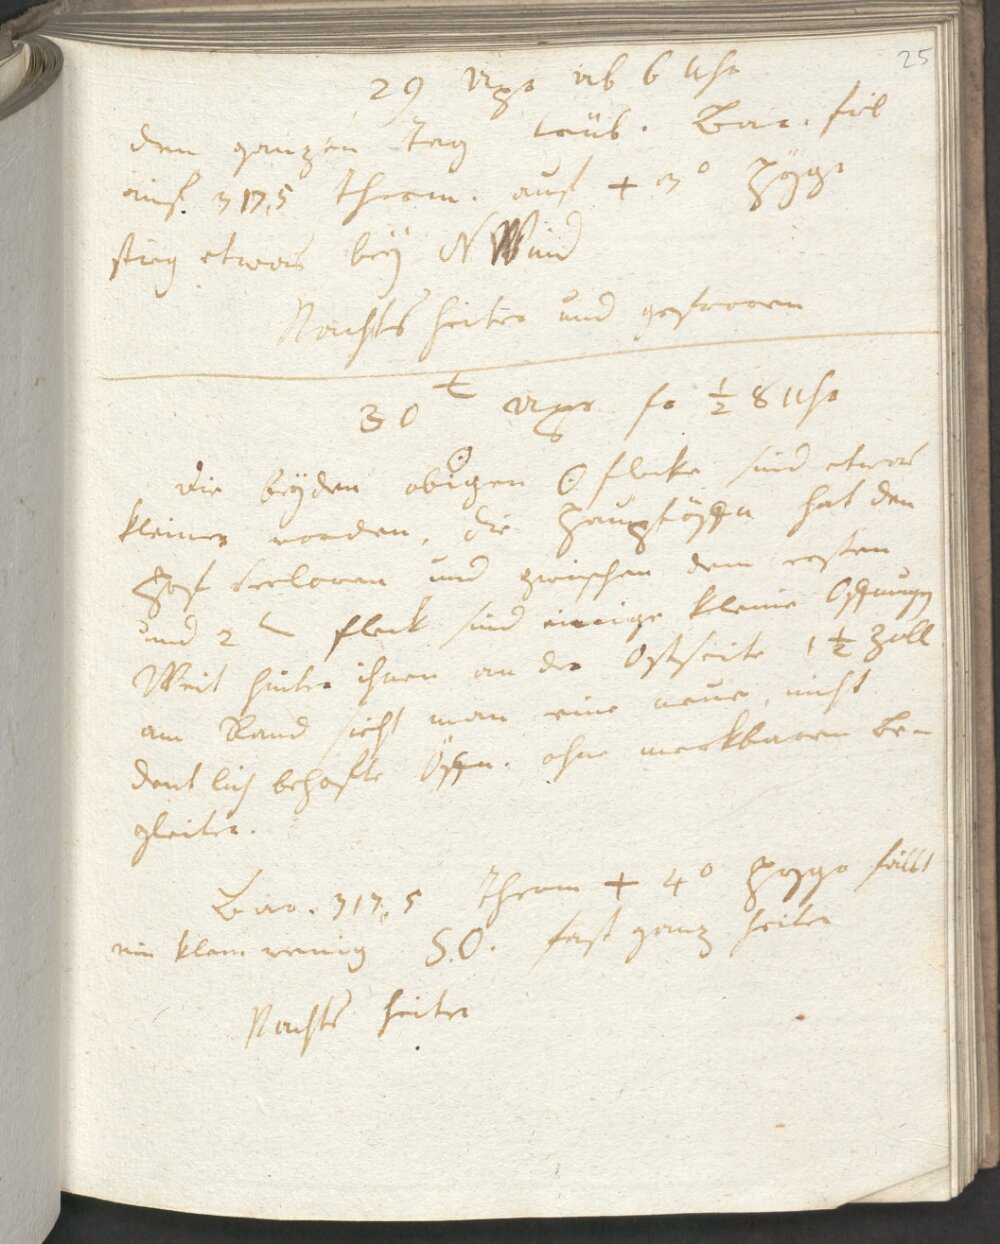 25
29 Apr ab 6 Uhr
den ganzen Tag trüb. Bar. fiel
auf 317,5 Therm. auf + 3° Hygr
stieg etwas bey N Wind
Nachts heiter und gefroren
30t Apr f. ½ 8 Uhr
Die beyden obigen ☉ flecke sind etwas
kleiner worden, die Hauptöffn hat den
Hof verloren und zwischen dem ersten
und 2 fleck sind einige kleine Öffnungen
Weit hinter ihnen an der Ostseite 1 ½ Zoll
am Rand sieht man eine neue, nicht
deutlich behofte Öffn. ohne merkbaren Be-
gleiter.
Bar. 317,5 Therm + 4° Hygr fällt
ein klein wenig S.O. fast ganz heiter
Nachts heiter